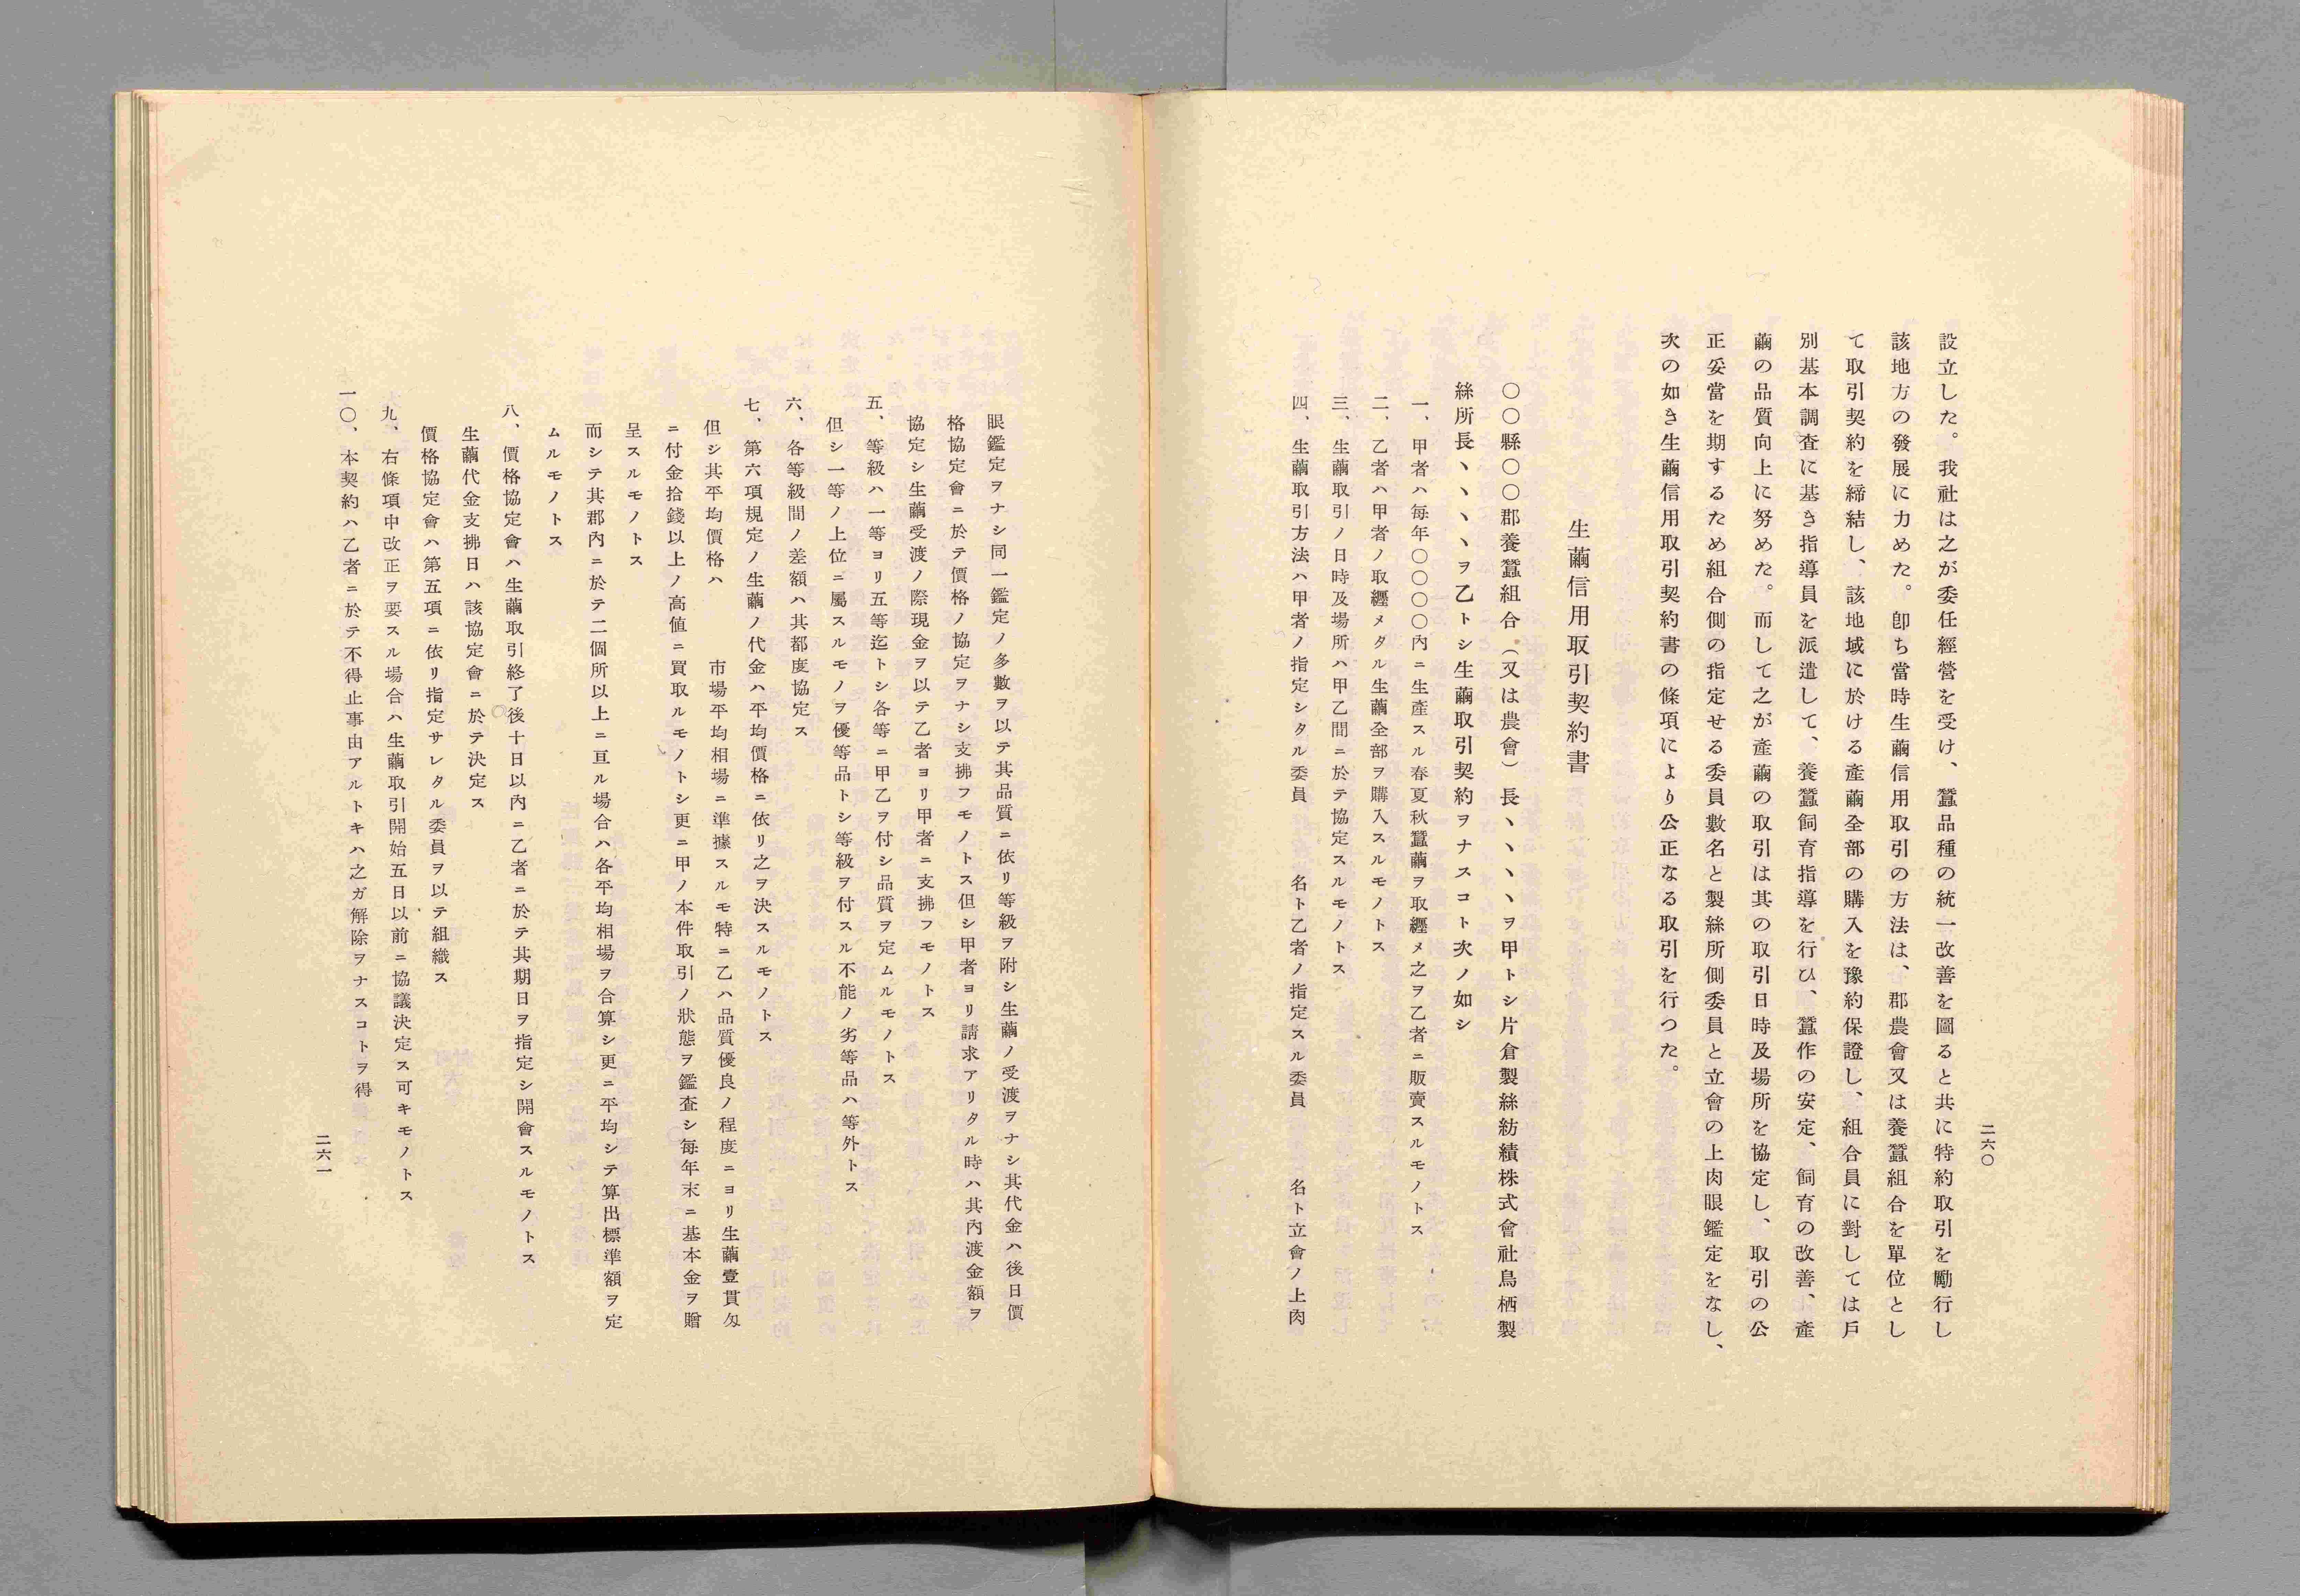 二六〇
設立した。我社は之が委任經營を受け、蠶品種の統一改善を圖ると共に特約取引を勵行し
該地方の發展に力めた。卽ち當時生繭信用取引の方法は、郡農會又は養蠶組合を單位とし
て取引契約を締結し、該地域に於ける產繭全部の購入を豫約保證し、組合員に對しては戶
別基本調査に基き指導員を派遣して、養蠶飼育指導を行ひ、蠶作の安定、飼育の改善、產
繭の品質向上に努めた。而して之が產繭の取引は其の取引日時及場所を協定し、取引の公
正妥當を期するため組合側の指定せる委員數名と製絲所側委員と立會の上肉眼鑑定をなし、
次の如き生繭信用取引契約書の條項により公正なる取引を行つた。
生繭信用取引契約書
〇〇縣〇〇郡養蠶組合（又は農會）長、、、、ヲ甲トシ片倉製絲紡績株式會社鳥栖製
絲所長、、、、ヲ乙トシ生繭取引契約ヲナスコト次ノ如シ
一、甲者ハ每年〇〇〇〇內ニ生產スル春夏秋蠶繭ヲ取纒メ之ヲ乙者ニ販賣スルモノトス
二、乙者ハ甲者ノ取纒メタル生繭全部ヲ購入スルモノトス
三、生繭取引ノ日時及場所ハ甲乙間ニ於テ協定スルモノトス
四、生繭取引方法ハ甲者ノ指定シタル委員　　名ト乙者ノ指定スル委員　　名ト立會ノ上肉
眼鑑定ヲナシ同一鑑定ノ多數ヲ以テ其品質ニ依リ等級ヲ附シ生繭ノ受渡ヲナシ其代金ハ後日價
格協定會ニ於テ價格ノ協定ヲナシ支拂フモノトス但シ甲者ヨリ請求アリタル時ハ其內渡金額ヲ
協定シ生繭受渡ノ際現金ヲ以テ乙者ヨリ甲者ニ支拂フモノトス
五、等級ハ一等ヨリ五等迄トシ各等ニ甲乙ヲ付シ品質ヲ定ムルモノトス
但シ一等ノ上位ニ屬スルモノヲ優等品トシ等級ヲ付スル不能ノ劣等品ハ等外トス
六、各等級間ノ差額ハ其都度協定ス
七、第六項規定ノ生繭ノ代金ハ平均價格ニ依リ之ヲ決スルモノトス
但シ其平均價格ハ　　　市場平均相場ニ準據スルモ特ニ乙ハ品質優良ノ程度ニヨリ生繭壹貫匁
ニ付金拾錢以上ノ高値ニ買取ルモノトシ更ニ甲ノ本件取引ノ狀態ヲ鑑査シ每年末ニ基本金ヲ贈
呈スルモノトス
而シテ其郡內ニ於テ二個所以上ニ亘ル場合ハ各平均相場ヲ合算シ更ニ平均シテ算出標準額ヲ定
ムルモノトス
八、價格協定會ハ生繭取引終了後十日以內ニ乙者ニ於テ其期日ヲ指定シ開會スルモノトス
生繭代金支拂日ハ該協定會ニ於テ決定ス
價格協定會ハ第五項ニ依リ指定サレタル委員ヲ以テ組織ス
九、右條項中改正ヲ要スル場合ハ生繭取引開始五日以前ニ協議決定ス可キモノトス
一〇、本契約ハ乙者ニ於テ不得止事由アルトキハ之ガ解除ヲナスコトヲ得
二六一